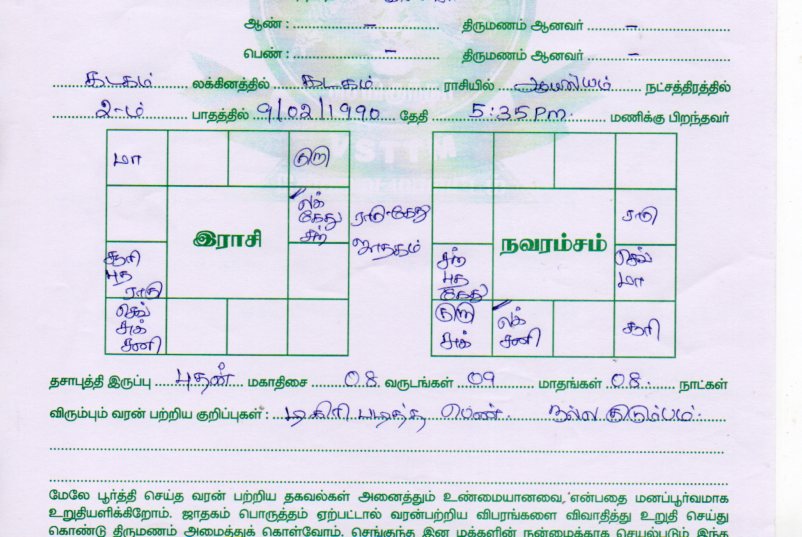 ஆண் : – திருமணம் ஆனவர் –
பெண் : – திருமணம் ஆனவர் –
கடகம் லக்கினத்தில் கடகம் ராசியில் ஆயில்யம் நட்சத்திரத்தில்
2-ம் பாதத்தில் 9/02/1990 தேதி 5:35 PM மணிக்கு பிறந்தவர்
VSTTM
மா
குரு
லக்
கேது
சந்
ராகு-கேது
ஜாதகம்
இராசி
சூரி
புத
ராகு
செவ்
சுக்
சனி
ராகு
நவரம்சம்
சந்
புத
கேது
செவ்
மா
குரு
சுக்
லக்
சனி
சூரி
தசாபுத்தி இருப்பு புதன் மகாதிசை 08 வருடங்கள் 09 மாதங்கள் 08 நாட்கள்
விரும்பும் வரன் பற்றிய குறிப்புகள் : டிகிரி படித்த பெண். நல்ல குடும்பம்.
மேலே பூர்த்தி செய்த வரன் பற்றிய தகவல்கள் அனைத்தும் உண்மையானவை, என்பதை மனப்பூர்வமாக
உறுதியளிக்கிறோம். ஜாதகம் பொருத்தம் ஏற்பட்டால் வரன்பற்றிய விபரங்களை விவாதித்து உறுதி செய்து
கொண்டு திருமணம் அமைத்துக் கொள்வோம். செங்குந்த இன மக்களின் நன்மைக்காக செயல்படும் இந்த